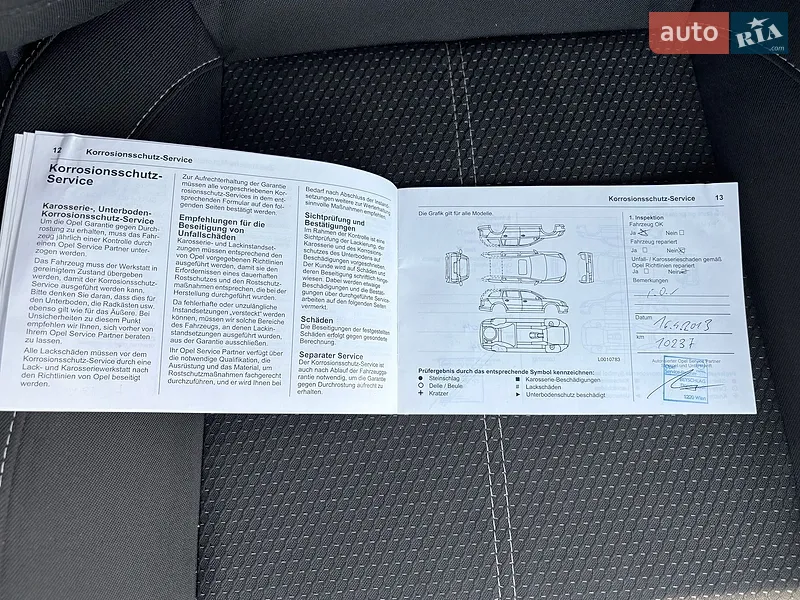 auto RIA
.com
12 Korrosionsschutz-Service
Korrosionsschutz-
Service
Karosserie-, Unterboden-
Korrosionsschutz-Service
Um die Opel Garantie gegen Durch-
rostung zu erhalten, muss das Fahr-
zeug jährlich einer Kontrolle durch
einen Opel Service Partner unter-
zogen werden.
Das Fahrzeug muss der Werkstatt in
gereinigtem Zustand übergeben
werden, damit der Korrosionsschutz-
Service ausgeführt werden kann.
Bitte denken Sie daran, dass dies für
den Unterboden, die Radkästen usw.
ebenso gilt wie für das Äußere. Bei
Unsicherheiten zu diesem Punkt
empfehlen wir Ihnen, sich vorher von
Ihrem Opel Service Partner beraten
zu lassen.
Alle Lackschäden müssen vor dem
Korrosionsschutz-Service durch eine
Lack- und Karosseriewerkstatt nach
den Richtlinien von Opel beseitigt
werden.
Zur Aufrechterhaltung der Garantie
müssen alle vorgeschriebenen Kor-
rosionsschutz-Services in dem ent-
sprechenden Formular auf den fol-
genden Seiten bestätigt werden.
Empfehlungen für die
Beseitigung von
Unfallschäden
Karosserie- und Lackinstandset-
zungen müssen entsprechend den
von Opel vorgegebenen Richtlinien
ausgeführt werden, damit sie den
Erfordernissen eines dauerhaften
Rostschutzes und den Rostschutz-
maßnahmen entsprechen, die bei der
Herstellung durchgeführt wurden.
Da fehlerhafte oder unzulängliche
Instandsetzungen „versteckt" werden
können, müssen wir solche Bereiche
des Fahrzeugs, an denen Lackin-
standsetzungen ausgeführt wurden,
aus der Garantie ausschließen.
Ihr Opel Service Partner verfügt über
die notwendige Qualifikation, die
Ausrüstung und das Material, um
Rostschutzmaßnahmen fachgerecht
durchzuführen, und er wird Ihnen bei
Bedarf nach Abschluss der Instand-
setzungen weitere zur Werterhaltung
sinnvolle Maßnahmen empfehlen.
Sichtprüfung und
Bestätigungen
Im Rahmen der Kontrolle ist eine
Sichtprüfung der Lackierung, der
Karosserie und des Korrosions-
schutzes des Unterbodens auf
Beschädigungen vorgeschrieben.
Der Kunde wird auf Schäden und
deren Beseitigung schriftlich hinge-
wiesen. Dabei werden etwaige
Beschädigungen und die Bestäti-
gungen über durchgeführte Service-
arbeiten auf den folgenden Seiten
vermerkt.
Schäden
Die Beseitigung der festgestellten
Schäden erfolgt gegen gesonderte
Berechnung.
Separater Service
Der Korrosionsschutz-Service ist
auch nach Ablauf der Fahrzeugga-
rantie notwendig, um die Garantie
gegen Durchrostung aufrecht zu
erhalten.
Korrosionsschutz-Service 13
Die Grafik gilt für alle Modelle.
L0010783
Prüfergebnis durch das entsprechende Symbol kennzeichnen:
Steinschlag
Delle / Beule
Kratzer
Karosserie-Beschädigungen
# Lackschäden
Unterbodenschutz beschädigt
1. Inspektion
Fahrzeug OK
Ja Nein
Fahrzeug repariert
Ja Nein
Unfall- / Karosserieschäden gemäß
Opel Richtlinien repariert
Ja Nein
Bemerkungen
Datum
16.4.2013
km
10237
Autorisierter Opel Service Partner
1220 Wien